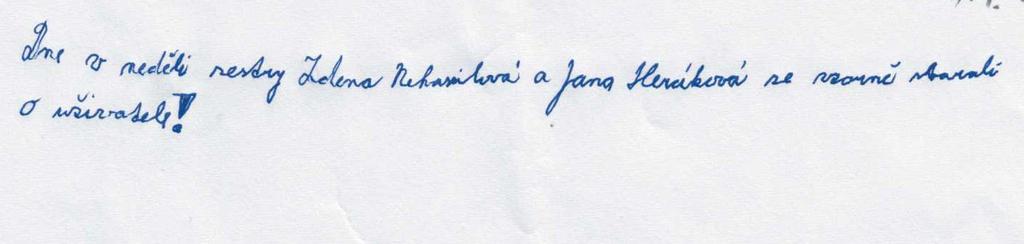 Dne v neděli sestry Zdena Nehasilová a Jana Heráková se vzorně starali
o uživatele!